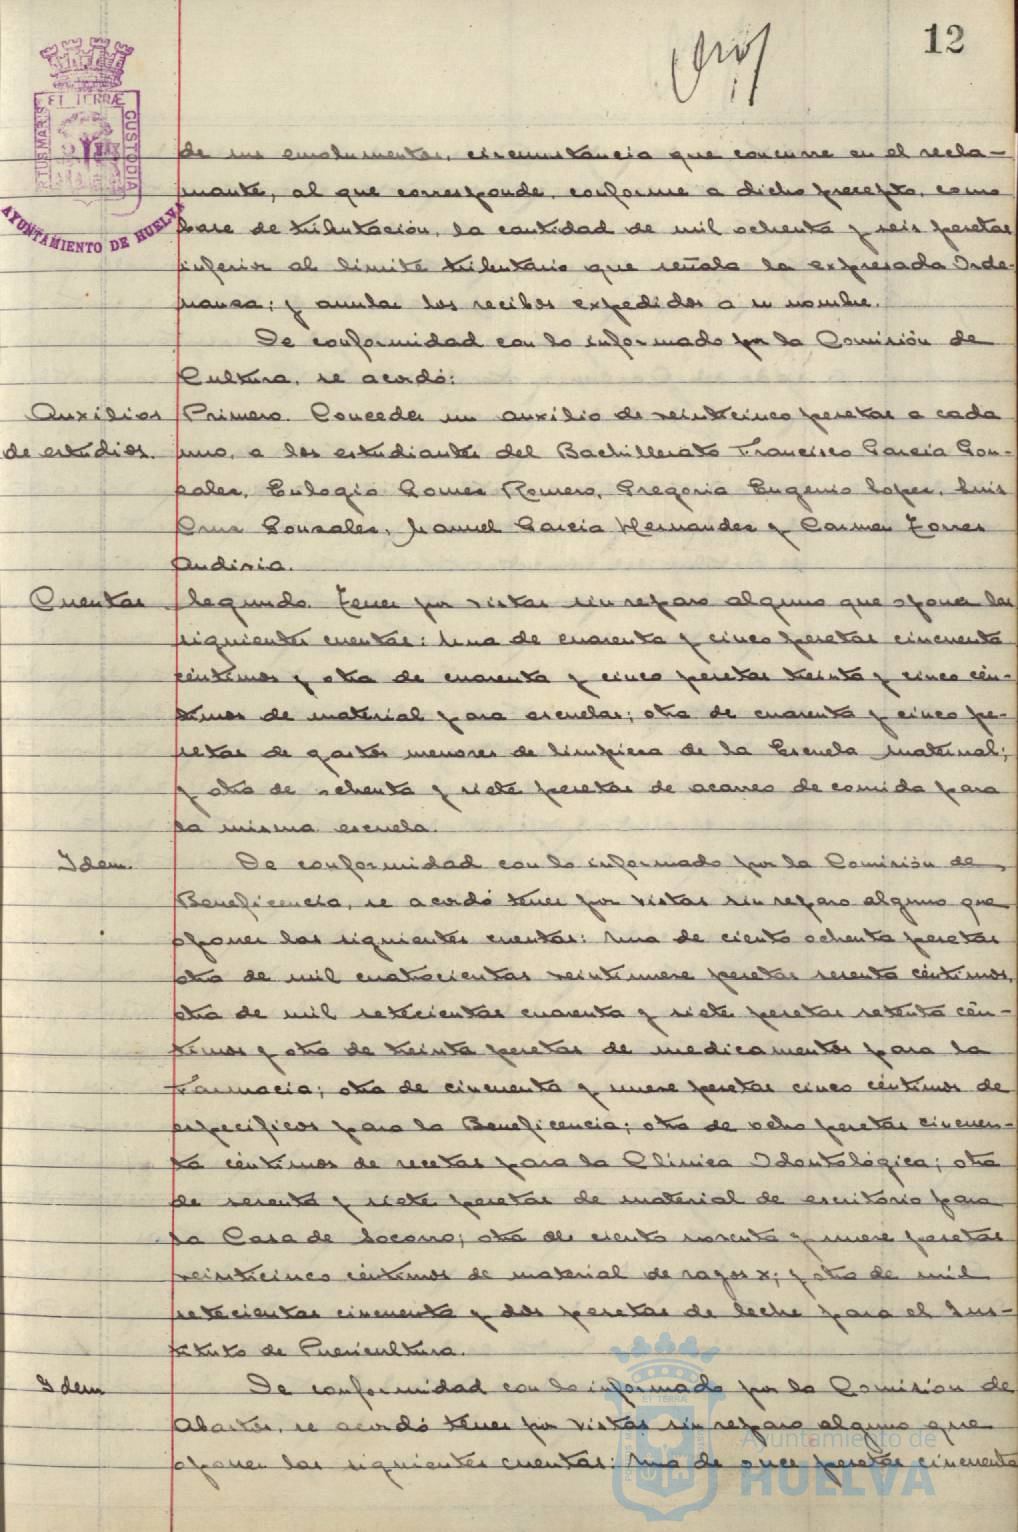 12
ET TERRÆ
CUSTODIA
AYUNTAMIENTO DE HUELVA
de sus emolumentos, circunstancia que concurre en el recla-
mante, al que corresponde, conforme a dicho precepto, como
base de tributación, la cantidad de mil ochenta y seis pesetas
inferior al límite tributario que señala la expresada Orde-
nanza; y anular los recibos expedidos a su nombre.
De conformidad con lo informado por la Comisión de
Cultura, se acordó:
Auxilios
de estudios.
Primero. Conceder un auxilio de veinticinco pesetas a cada
uno, a los estudiantes del Bachillerato Francisco García Gon-
zalez, Eulogio Gomez Romero, Gregoria Eugenio Lopez, Luis
Cruz Gonzalez, Manuel García Hernandez y Carmen Torres
Cuentas
Segundo. Tener por vistas sin reparo alguno que oponer las
siguientes cuentas: Una de cuarenta y cinco pesetas cincuenta
céntimos y otra de cuarenta y cinco pesetas treinta y cinco cén-
timos de material para escuelas; otra de cuarenta y cinco pe-
setas de gastos menores de limpieza de la Escuela maternal;
y otra de ochenta y siete pesetas de acarreo de comida para
la misma escuela.
Idem.
De conformidad con lo informado por la Comisión de
Beneficencia, se acordó tener por vistas sin reparo alguno que
oponer las siguientes cuentas: Una de ciento ochenta pesetas
otra de mil cuatrocientas veintinueve pesetas sesenta céntimos,
otra de mil setecientas cuarenta y siete pesetas setenta cén-
timos y otra de treinta pesetas de medicamentos para la
Farmacia; otra de cincuenta y nueve pesetas cinco céntimos de
específicos para la Beneficencia; otra de ocho pesetas cincuen-
ta céntimos de recetas para la Clínica Odontológica; otra
de sesenta y siete pesetas de material de escritorio para
la Casa de Socorro; otra de ciento noventa y nueve pesetas
veinticinco céntimos de material de rayos x; y otra de mil
setecientas cincuenta y dos pesetas de leche para el Ins-
tituto de Puericultura.
Idem
De conformidad con lo informado por la Comisión de
Abastos, se acordó tener por vistas sin reparo alguno que
oponer las siguientes cuentas: Una de once pesetas cincuenta
Ayuntamiento de
HUELVA